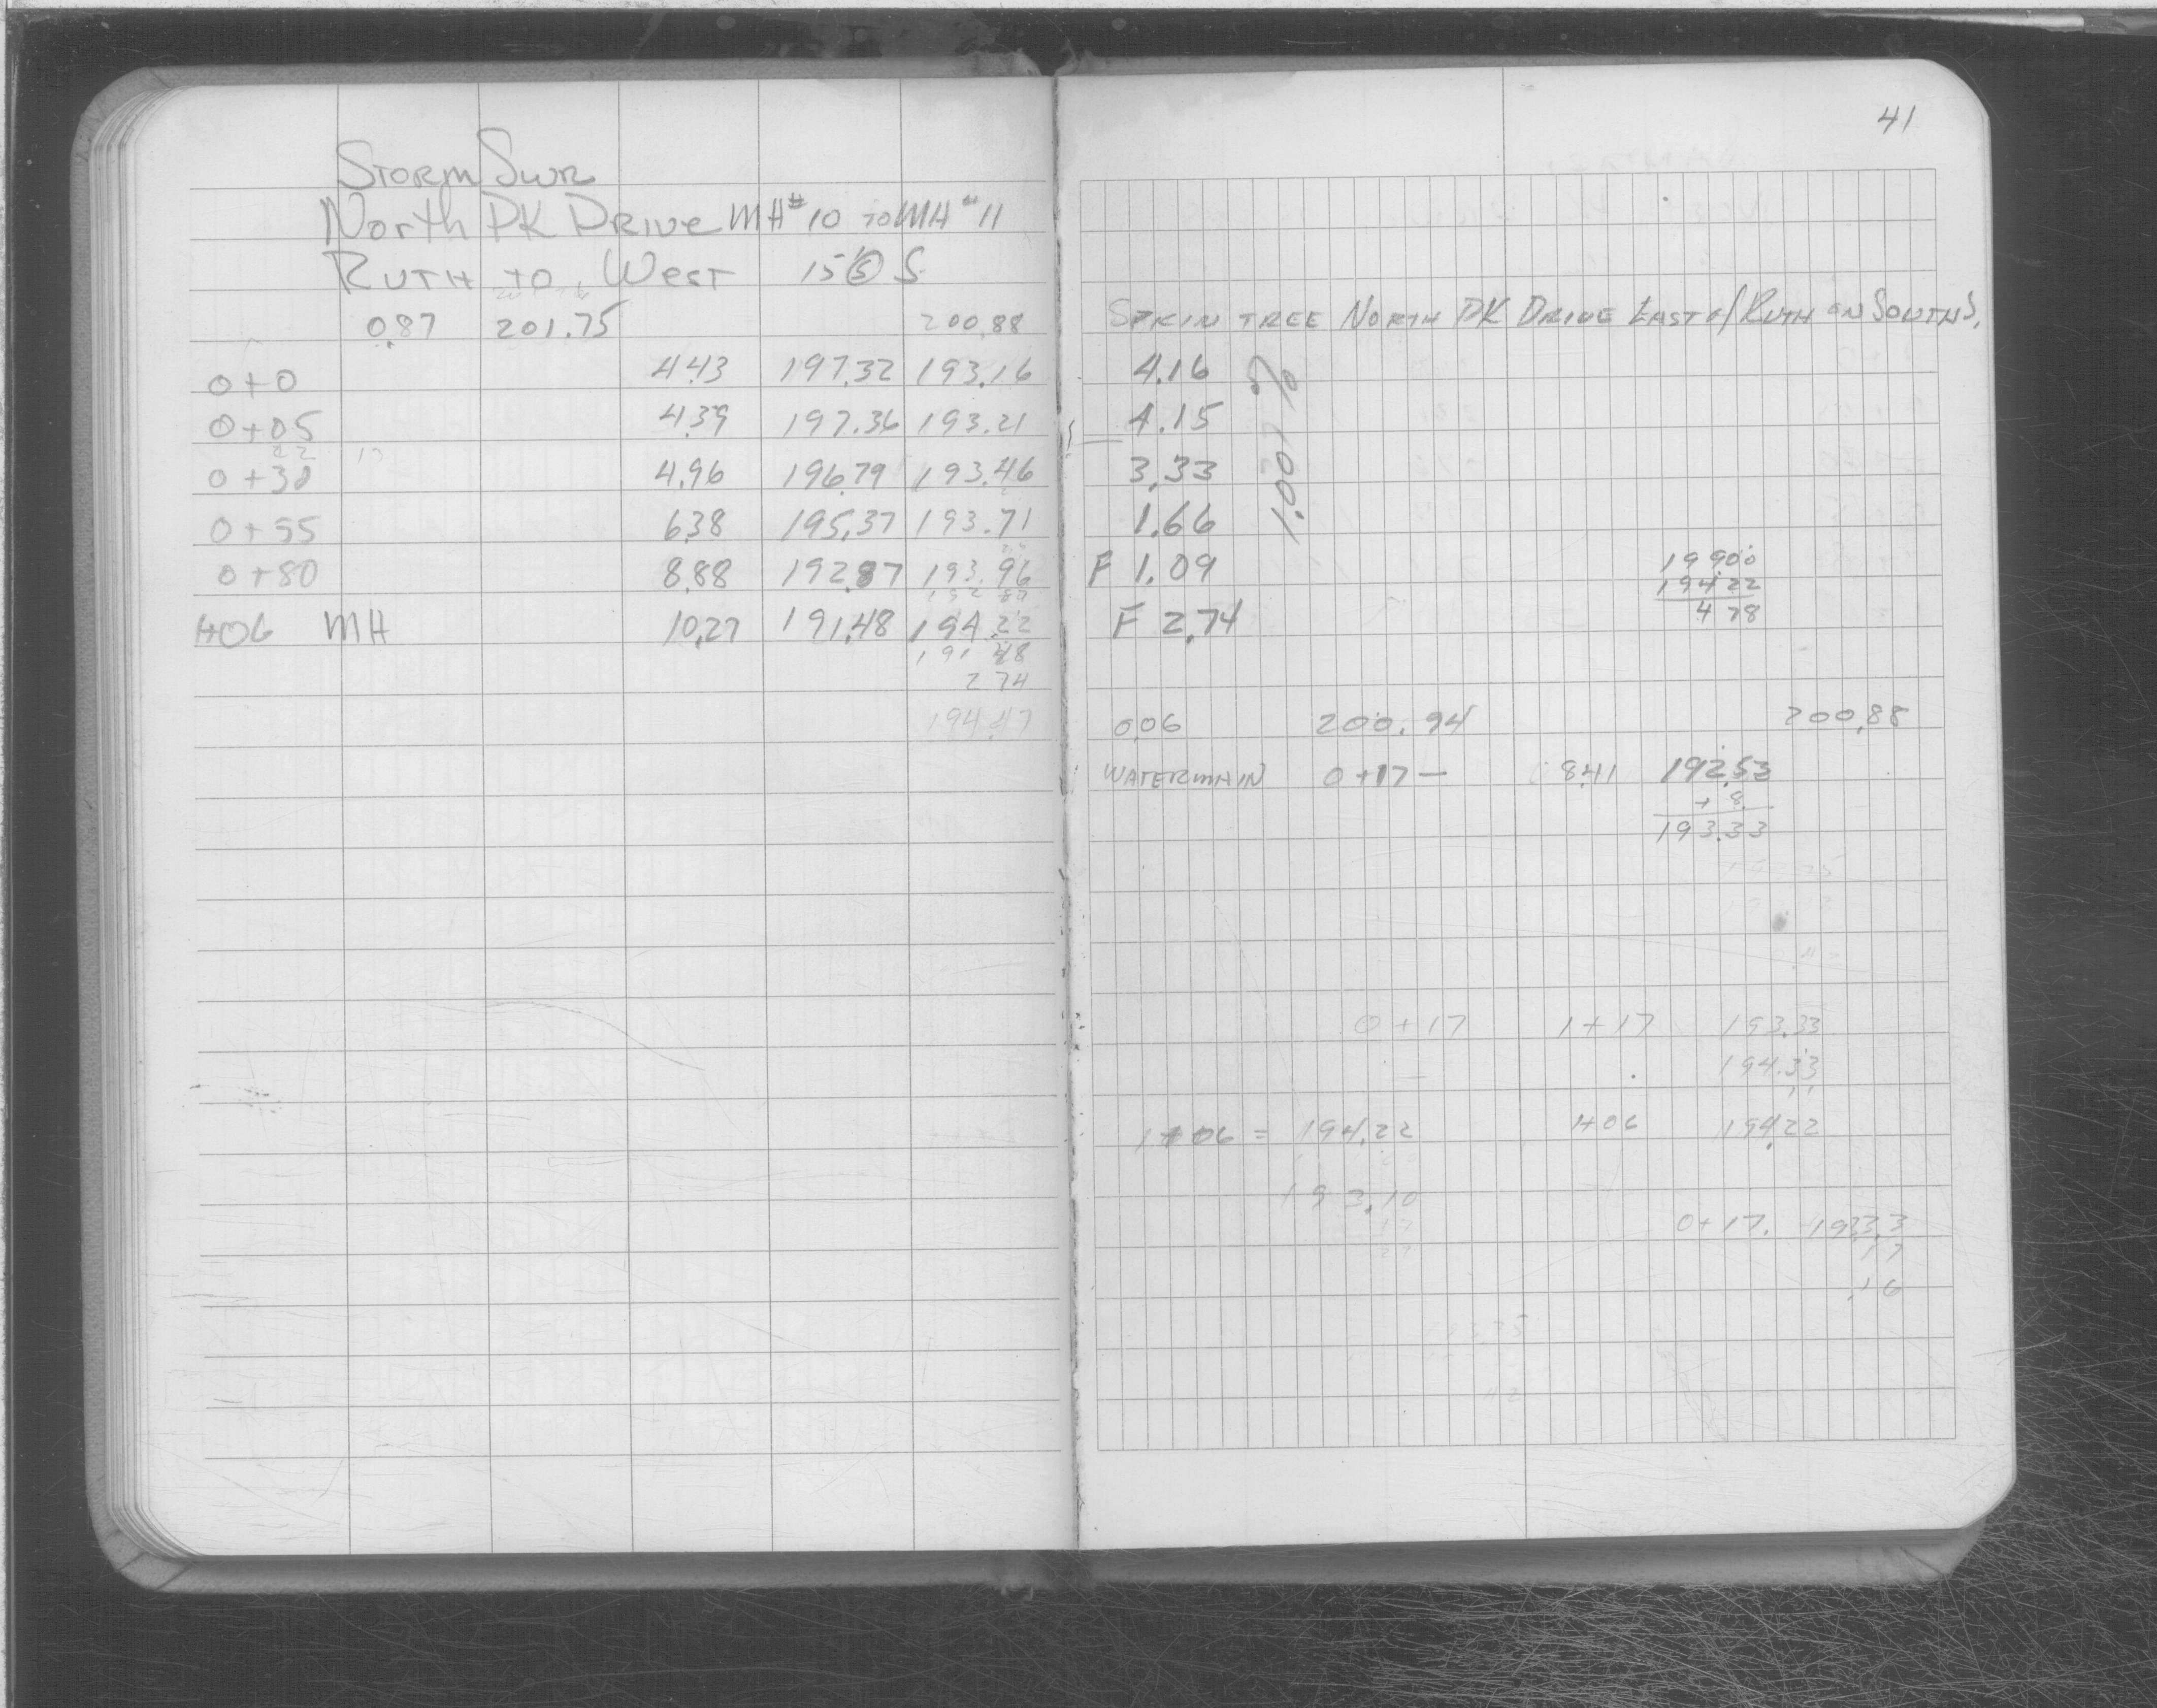 41
Storm Swr
North PK Drive MH#10 to MH#11
Ruth to West 15' S
0.87 201.75 200.88 Spk in tree North PK Drive East of Ruth on South S.
0+0 4.43 197.32 193.16 4.16
0+05 4.39 197.36 193.21 4.15
0+30 4.96 196.79 193.46 3.33
0+55 6.38 195.37 193.71 1.66
1.00%
0+80 8.88 192.87 193.96 F 1.09
1+06 MH 10.27 191.48 194.22 F 2.74
191 48
2 74
194.47
199.00
194.22
4 78
0.06 200.94 200.88
Watermain 0+17 — 8.41 192.53
+ 8
193.33
0+17 1+17 193.33
194.33
11
1+06 = 194.22 1+06 194.22
193.10
0+17. 193.33
17
.16